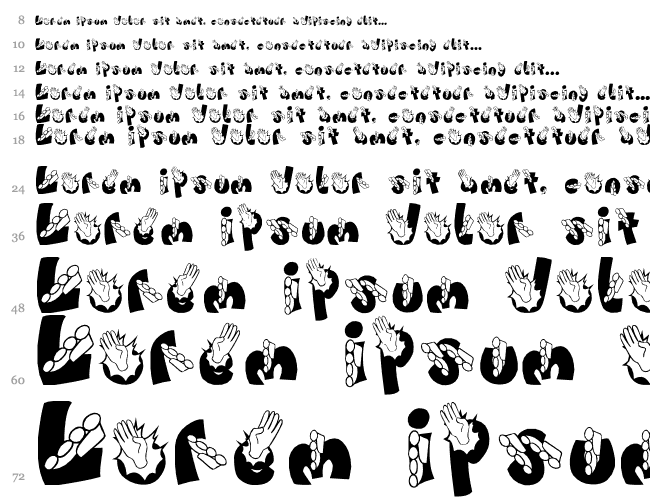 8 Lorem ipsum dolor sit amet, consectetuer adipiscing elit...
10 Lorem ipsum dolor sit amet, consectetuer adipiscing elit...
12 Lorem ipsum dolor sit amet, consectetuer adipiscing elit...
14 Lorem ipsum dolor sit amet, consectetuer adipiscing elit...
16 Lorem ipsum dolor sit amet, consectetuer adipisci
18 Lorem ipsum dolor sit amet, consectetuer ad
24 Lorem ipsum dolor sit amet, cons
36 Lorem ipsum dolor sit
48 Lorem ipsum dolo
60 Lorem ipsum d
72 Lorem ipsum